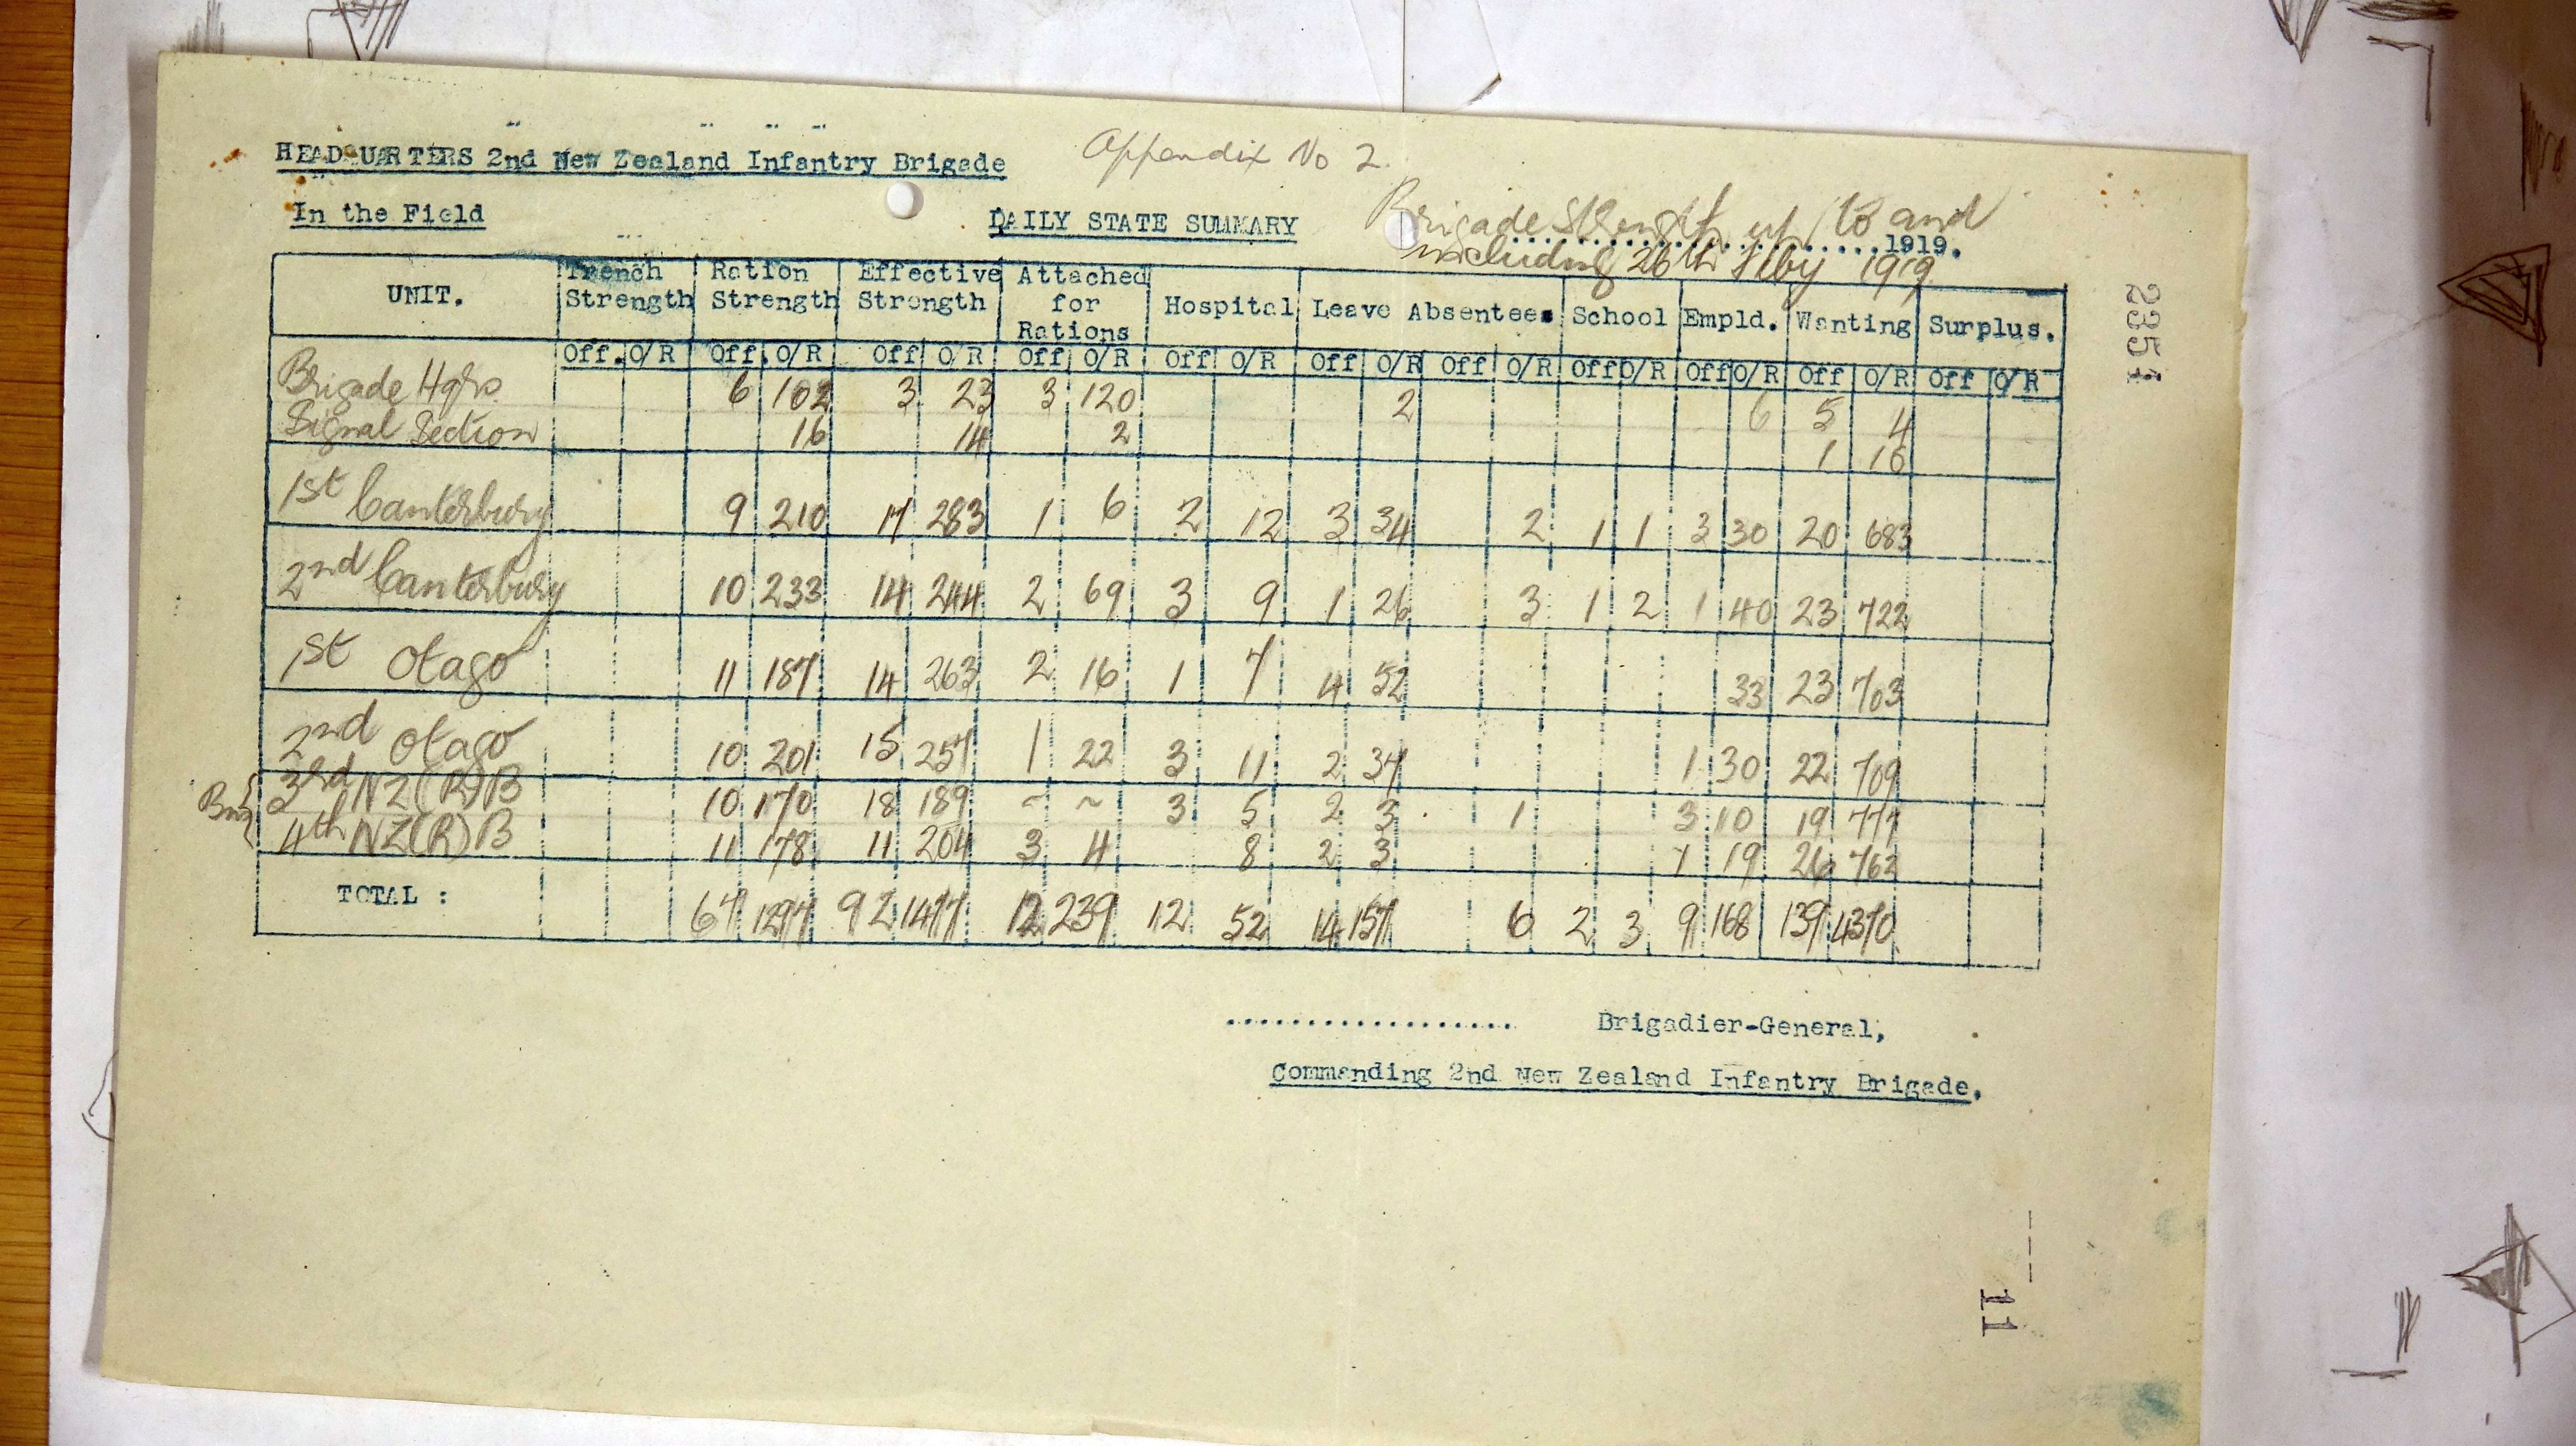 HEADQUARTERS 2nd New Zealand Infantry Brigade
Appendix No 2.
In the Field
DAILY STATE SUMMARY
Brigade Strength up to and
....................1919.
including 26th Feby 1919
2351
UNIT. Trench Strength Ration Strength Effective Strength Attached for Rations Hospital Leave Absentees School Empld. Wanting Surplus.
Off. O/R Off. O/R Off O/R Off O/R Off O/R Off O/R Off O/R Off O/R Off O/R Off O/R Off O/R
Brigade Hqrs 6 102 3 23 3 120 2 6 5 4
Signal Section 16 14 2 1 16
1st Canterbury 9 210 17 283 1 6 2 12 3 34 2 1 1 3 30 20 683
2nd Canterbury 10 233 14 244 2 69 3 9 1 26 3 1 2 1 40 23 722
1st Otago 11 187 14 263 2 16 1 7 4 52 33 23 703
2nd Otago 10 201 15 257 1 22 3 11 2 37 1 30 22 709
Bns { 3rd NZ(R)B 10 170 18 189 ~ ~ 3 5 2 3 1 3 10 19 777
4th NZ(R)B 11 178 11 204 3 4 8 2 3 1 19 26 762
TOTAL : 67 1297 92 1477 12 239 12 52 14 157 6 2 3 9 168 139 4370
................... Brigadier-General,
Commanding 2nd New Zealand Infantry Brigade.
11